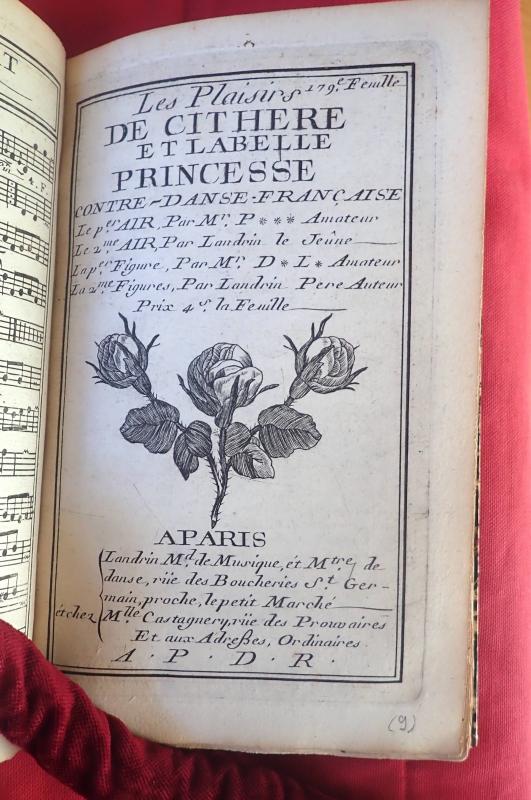 Les Plaisirs 179.e Feuille
DE CITHERE
ET LABELLE
PRINCESSE
CONTRE-DANSE-FRANÇAISE
Le p.er AIR, Par M.r P*** Amateur
Le 2.me AIR, Par Landrin le Jeûne
La p.er Figure, Par M.r D*L* Amateur
La 2.me Figures, Par Landrin Pere Auteur
Prix 4.s la Feuille
APARIS
Landrin M.d de Musique, ét M.tre de
danse, rüe des Boucheries S.t Ger-
main, proche, le petit Marché
ét chez M.lle Castagnery, rüe des Prouvaires
Et aux Adreßes, Ordinaires.
A . P . D . R .
(9)
T